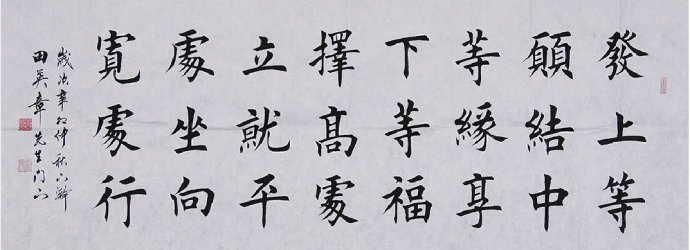 發上等
願結中
等緣享
下等福
擇髙處
立就平
處坐向
寬處行
歲次辛卯仲秋
田英章先生門人